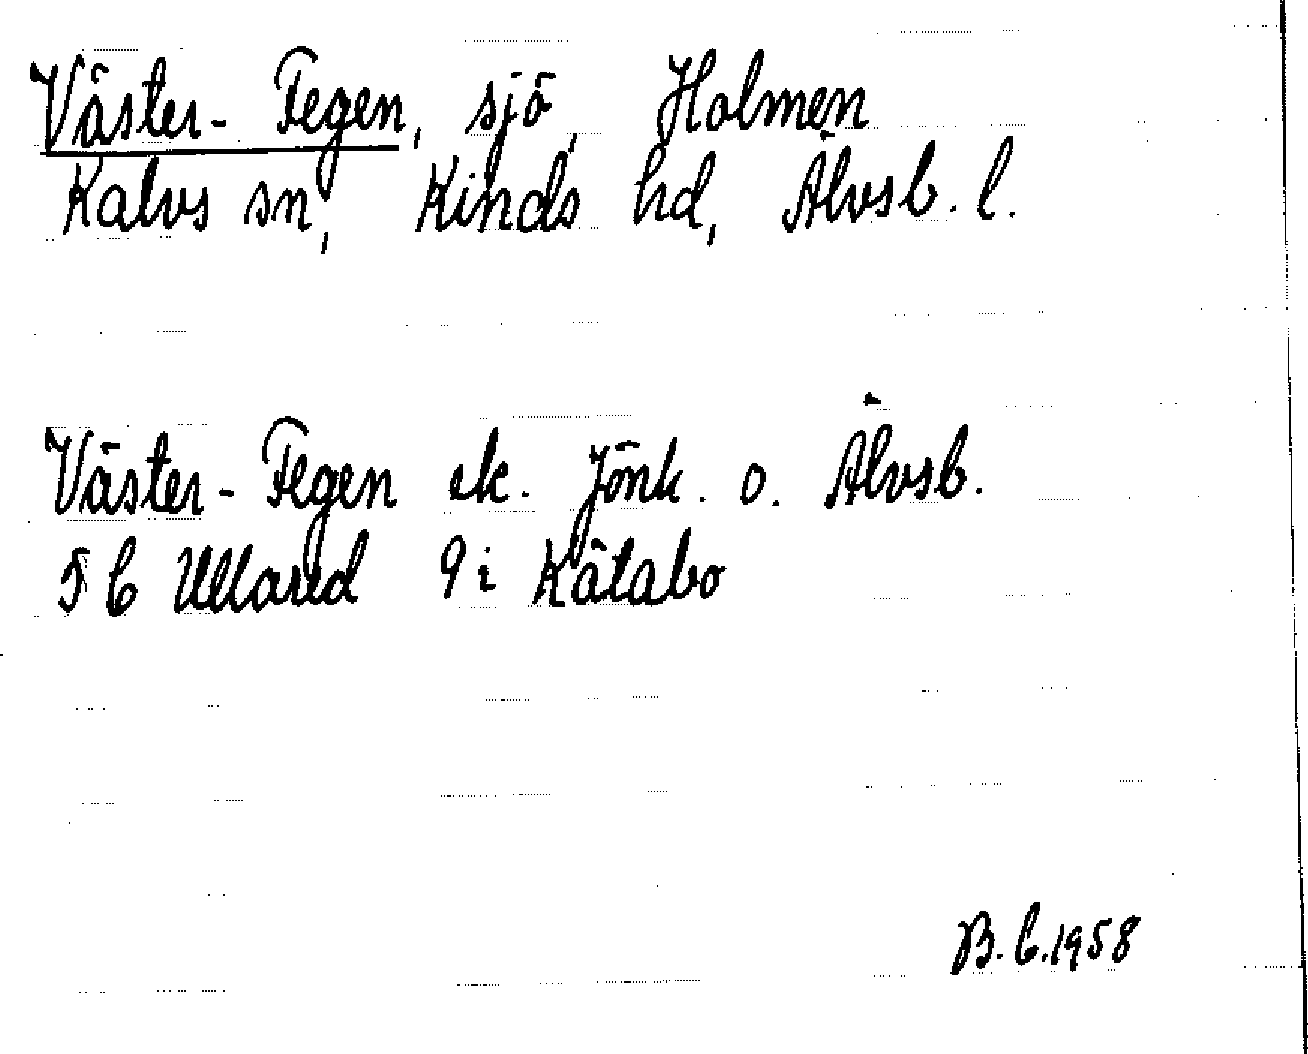 Väster-Fegen, sjö, Holmen
Kalvs sn, Kinds hd, Älvsb. l.
Väster-Fegen ek. Jönk. o. Älvsb.
5 C Ullared 9 i Kätabo
B. C. 1958